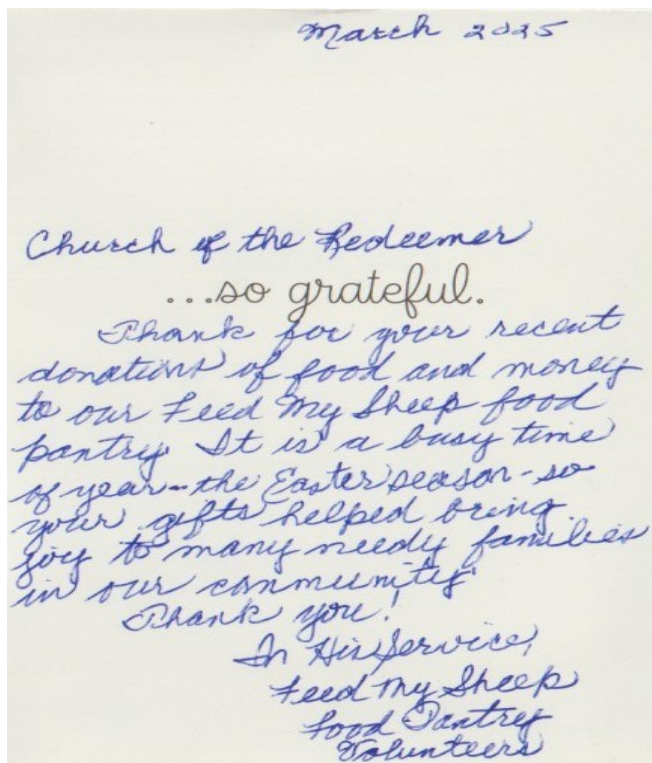 March 2025
Church of the Redeemer
...so grateful.
Thank for your recent
donations of food and money
to our Feed My Sheep food
pantry. It is a busy time
of year--the Easter season--so
your gifts helped bring
joy to many needy families
in our community.
Thank you!
In His Service,
Feed My Sheep
Food Pantry
Volunteers